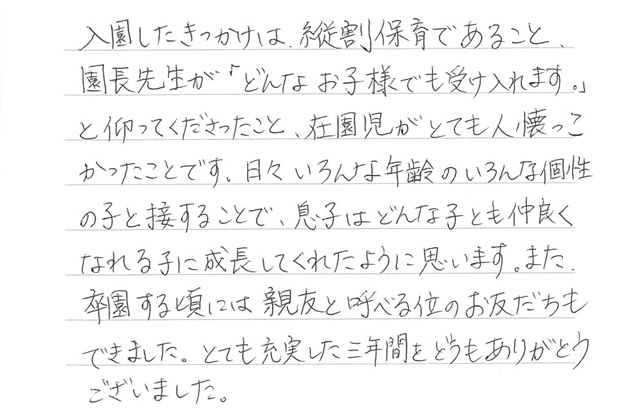 入園したきっかけは、縦割保育であること、
園長先生が「どんなお子様でも受け入れます。」
と仰ってくださったこと、在園児がとても人懐っこ
かったことです。日々いろんな年齢のいろんな個性
の子と接することで、息子はどんな子とも仲良く
なれる子に成長してくれたように思います。また、
卒園する頃には親友と呼べる位のお友だちも
できました。とても充実した三年間をどうもありがとう
ございました。